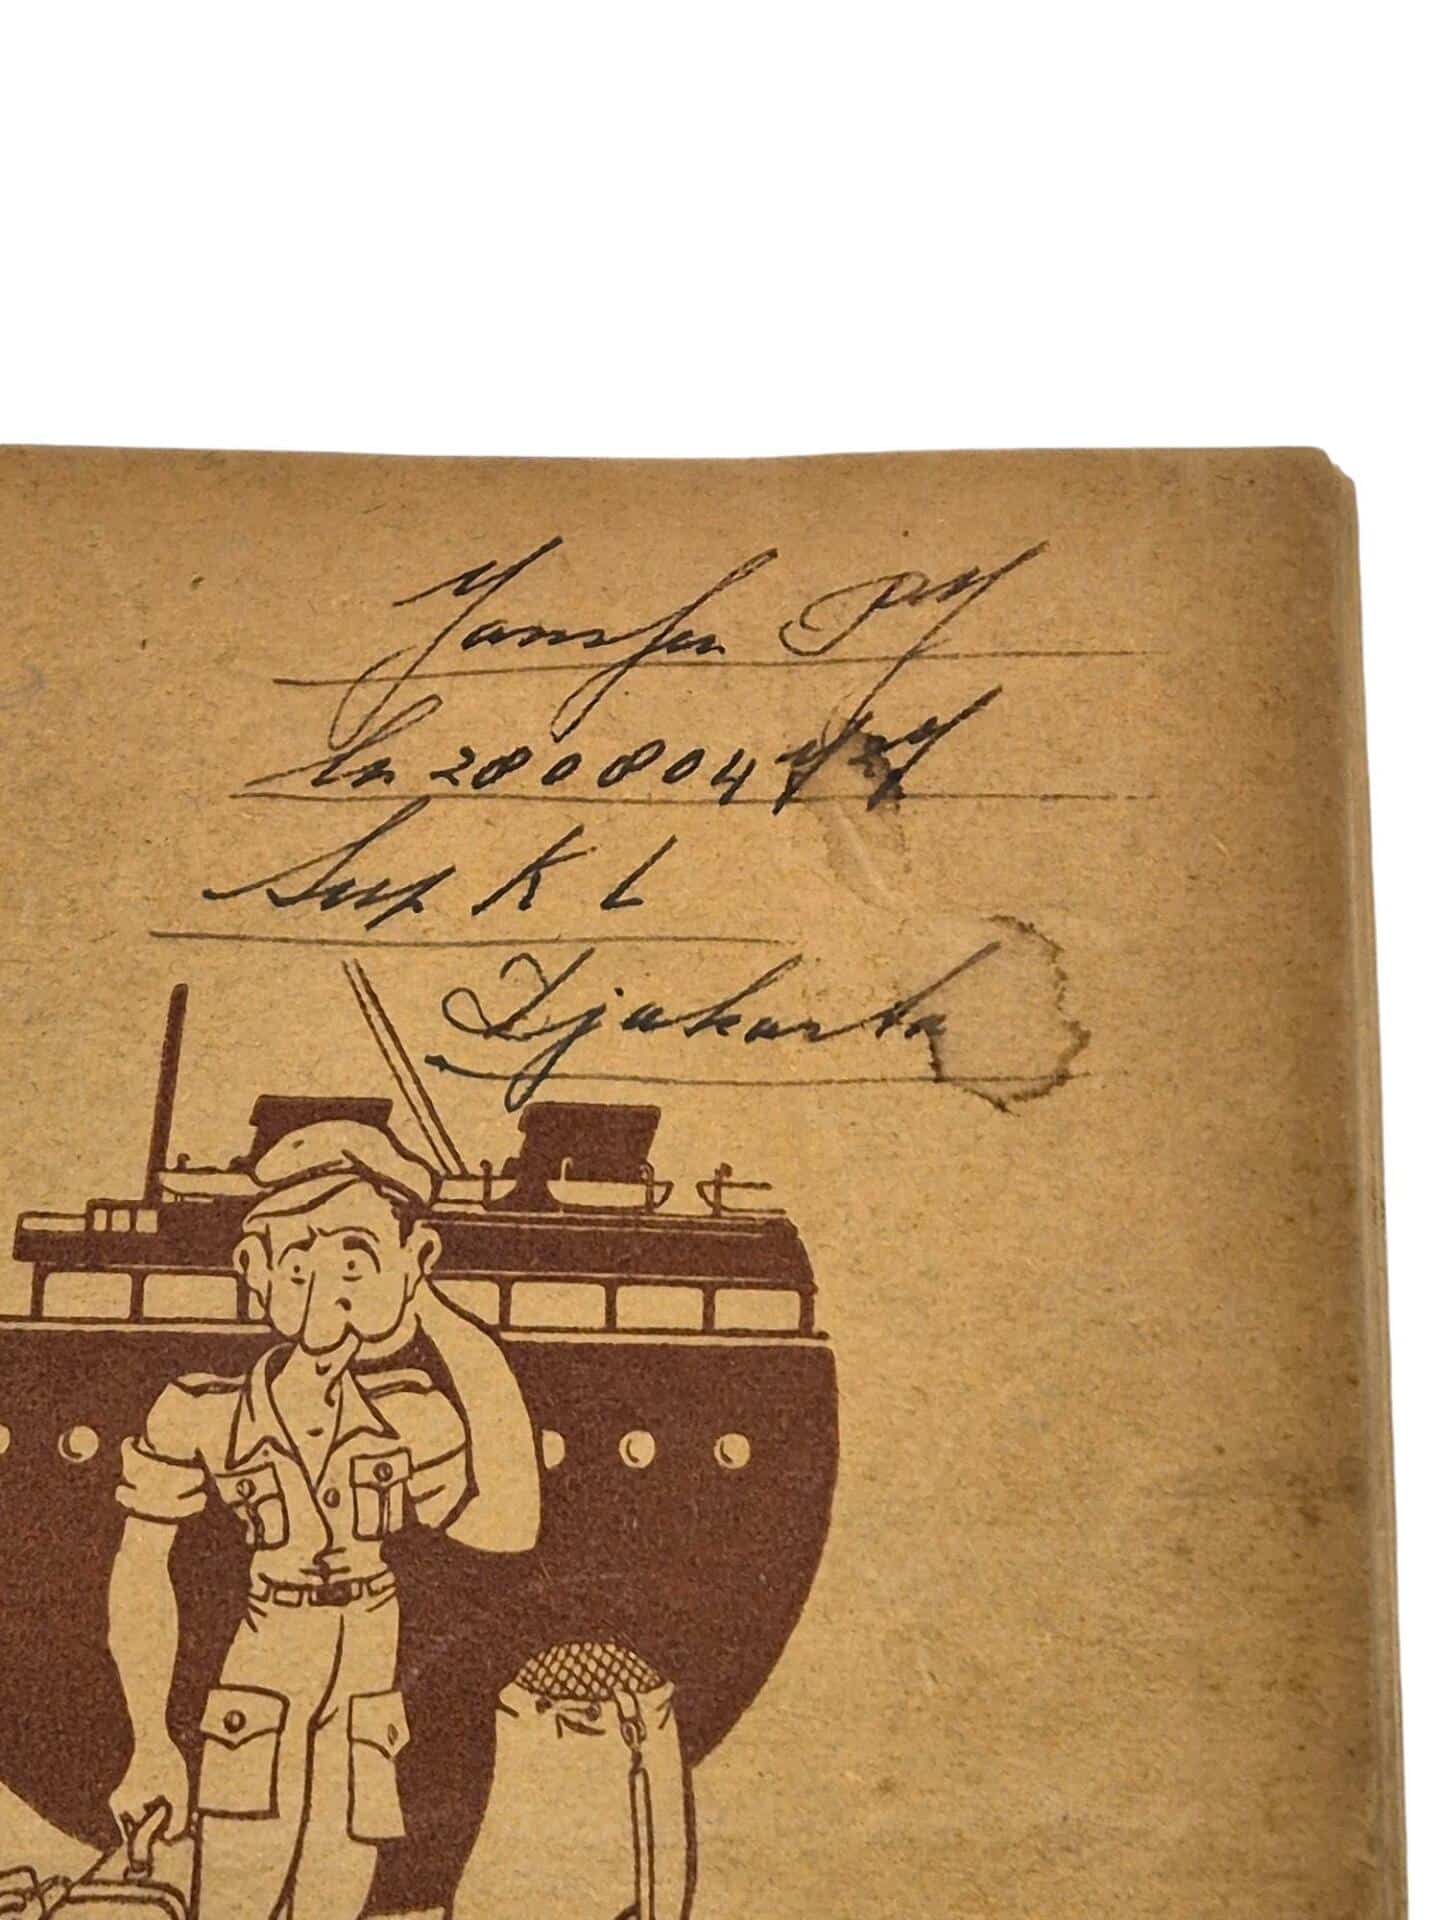 Janssen PJ
Ln 280804
Sup K L
Djakarta